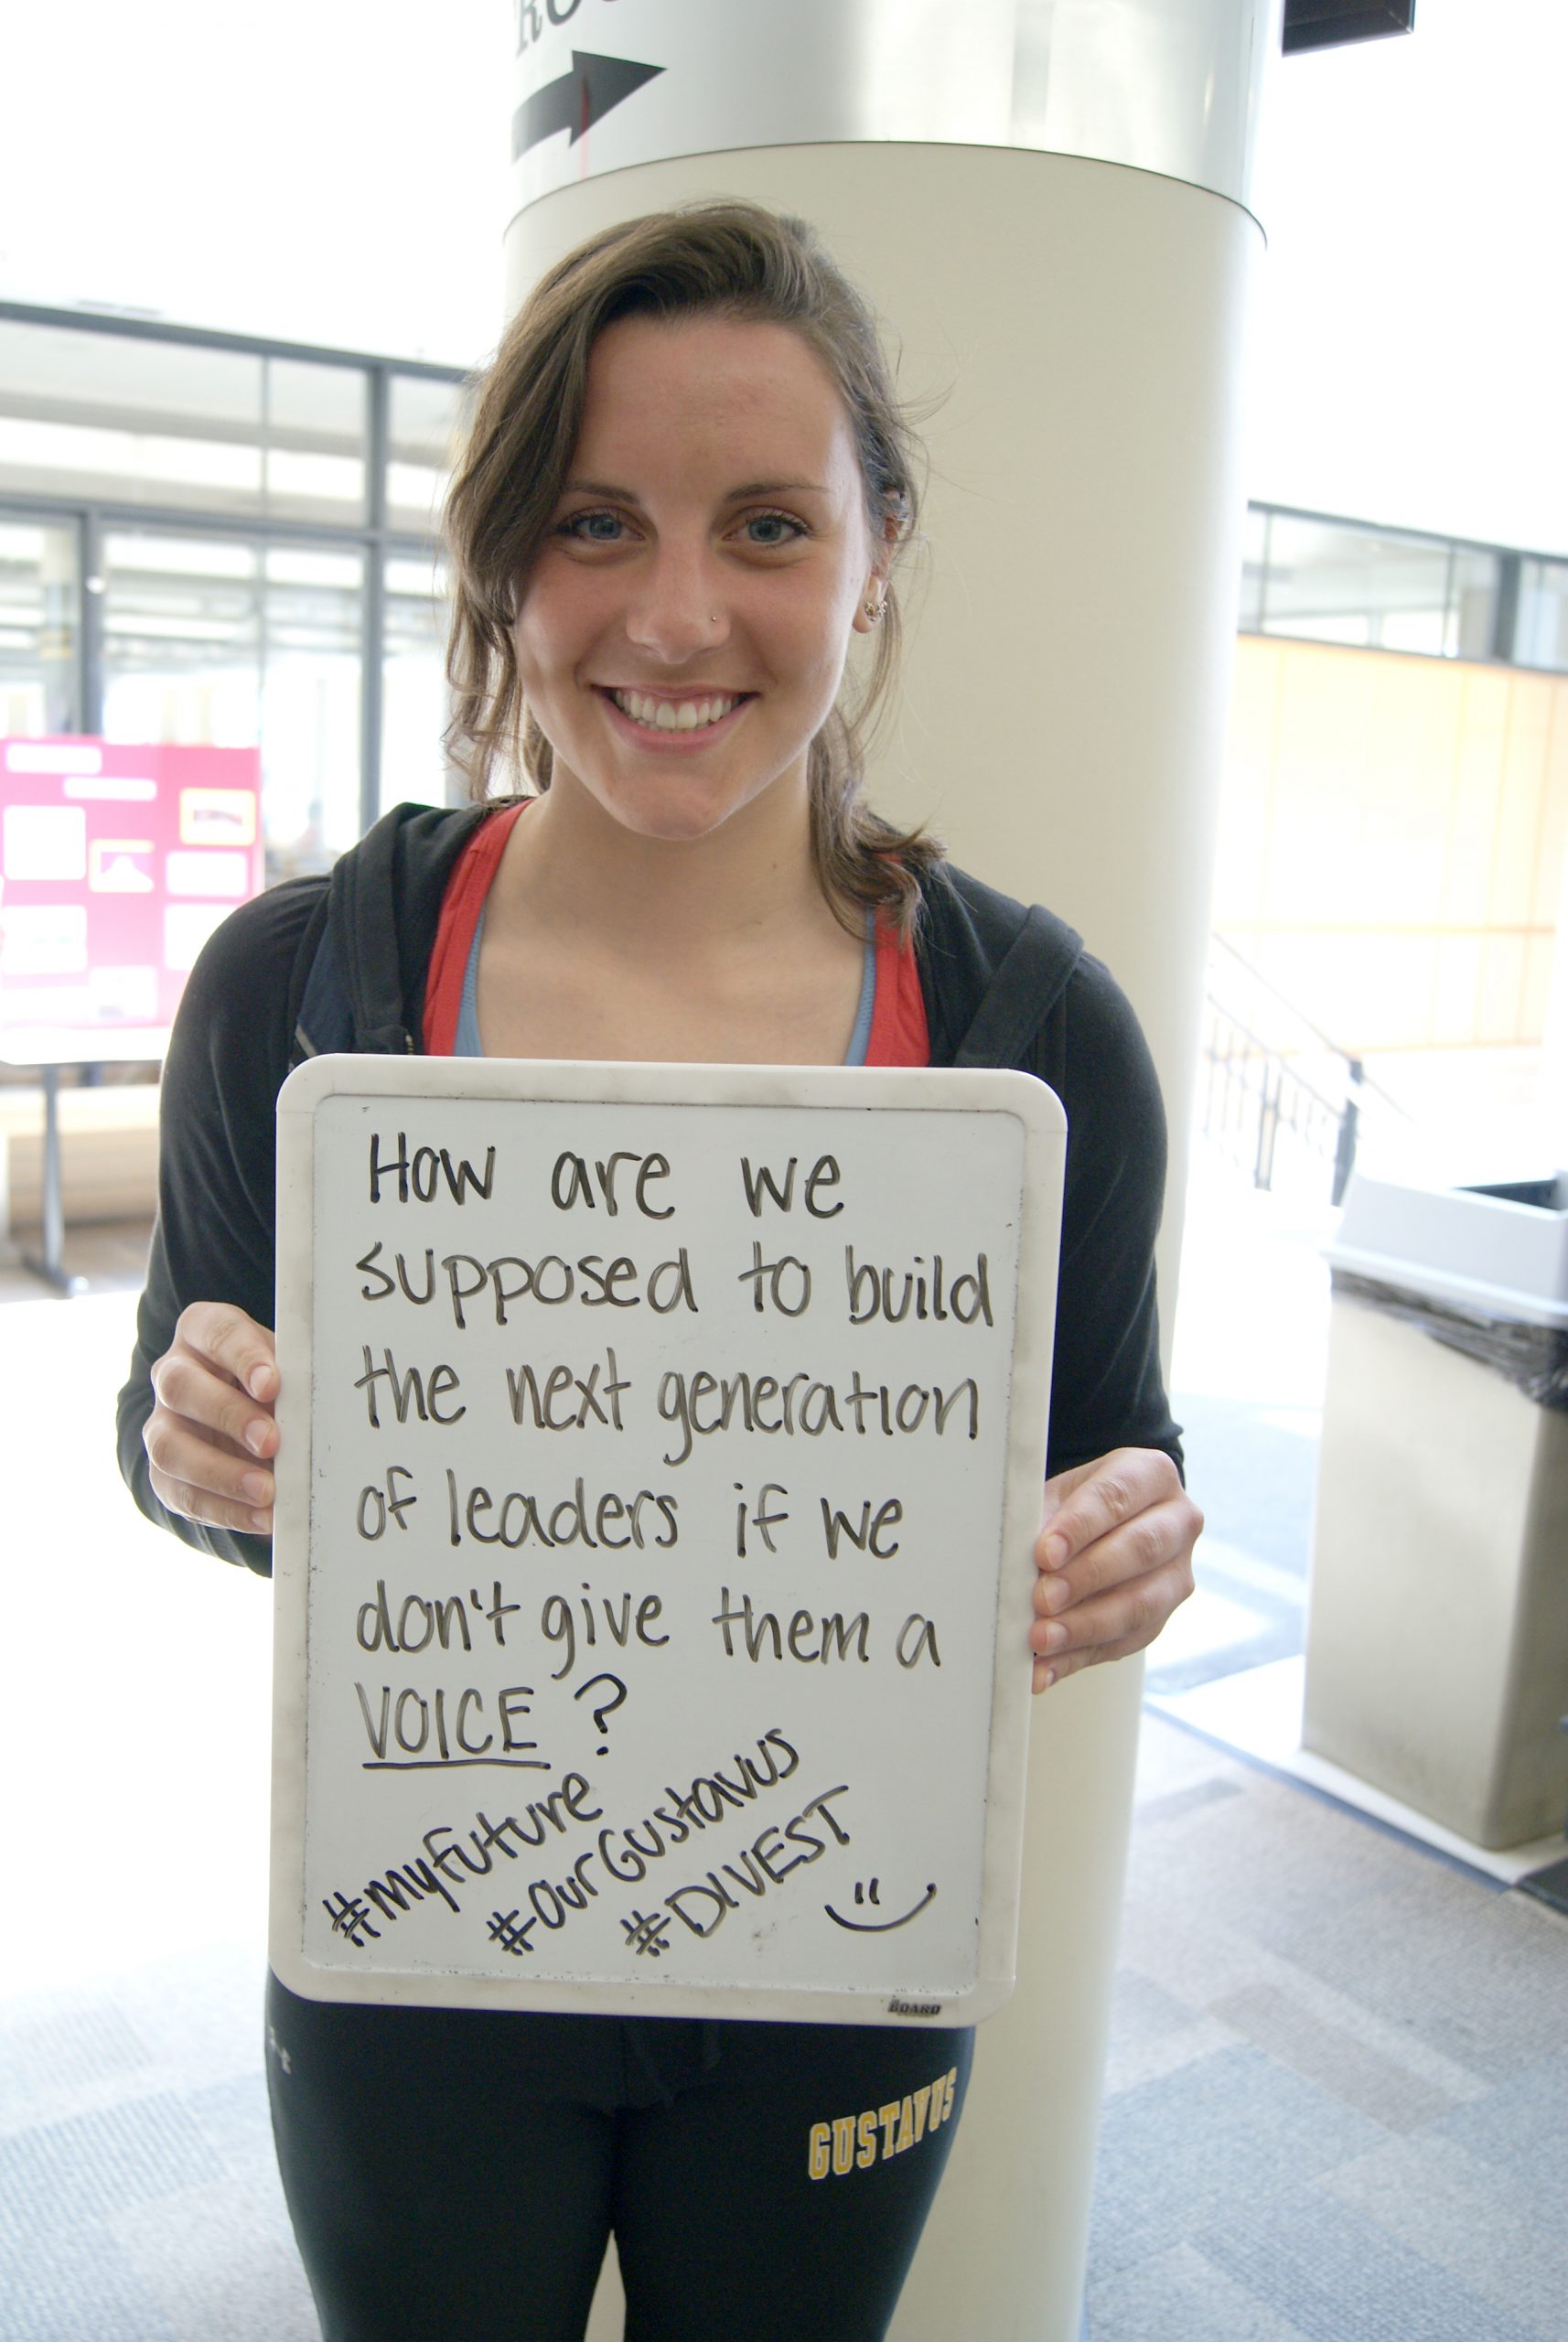 How are we
supposed to build
the next generation
of leaders if we
don't give them a
VOICE?
#myfuture
#OurGustavus
#DIVEST
BOARD
GUSTAVUS